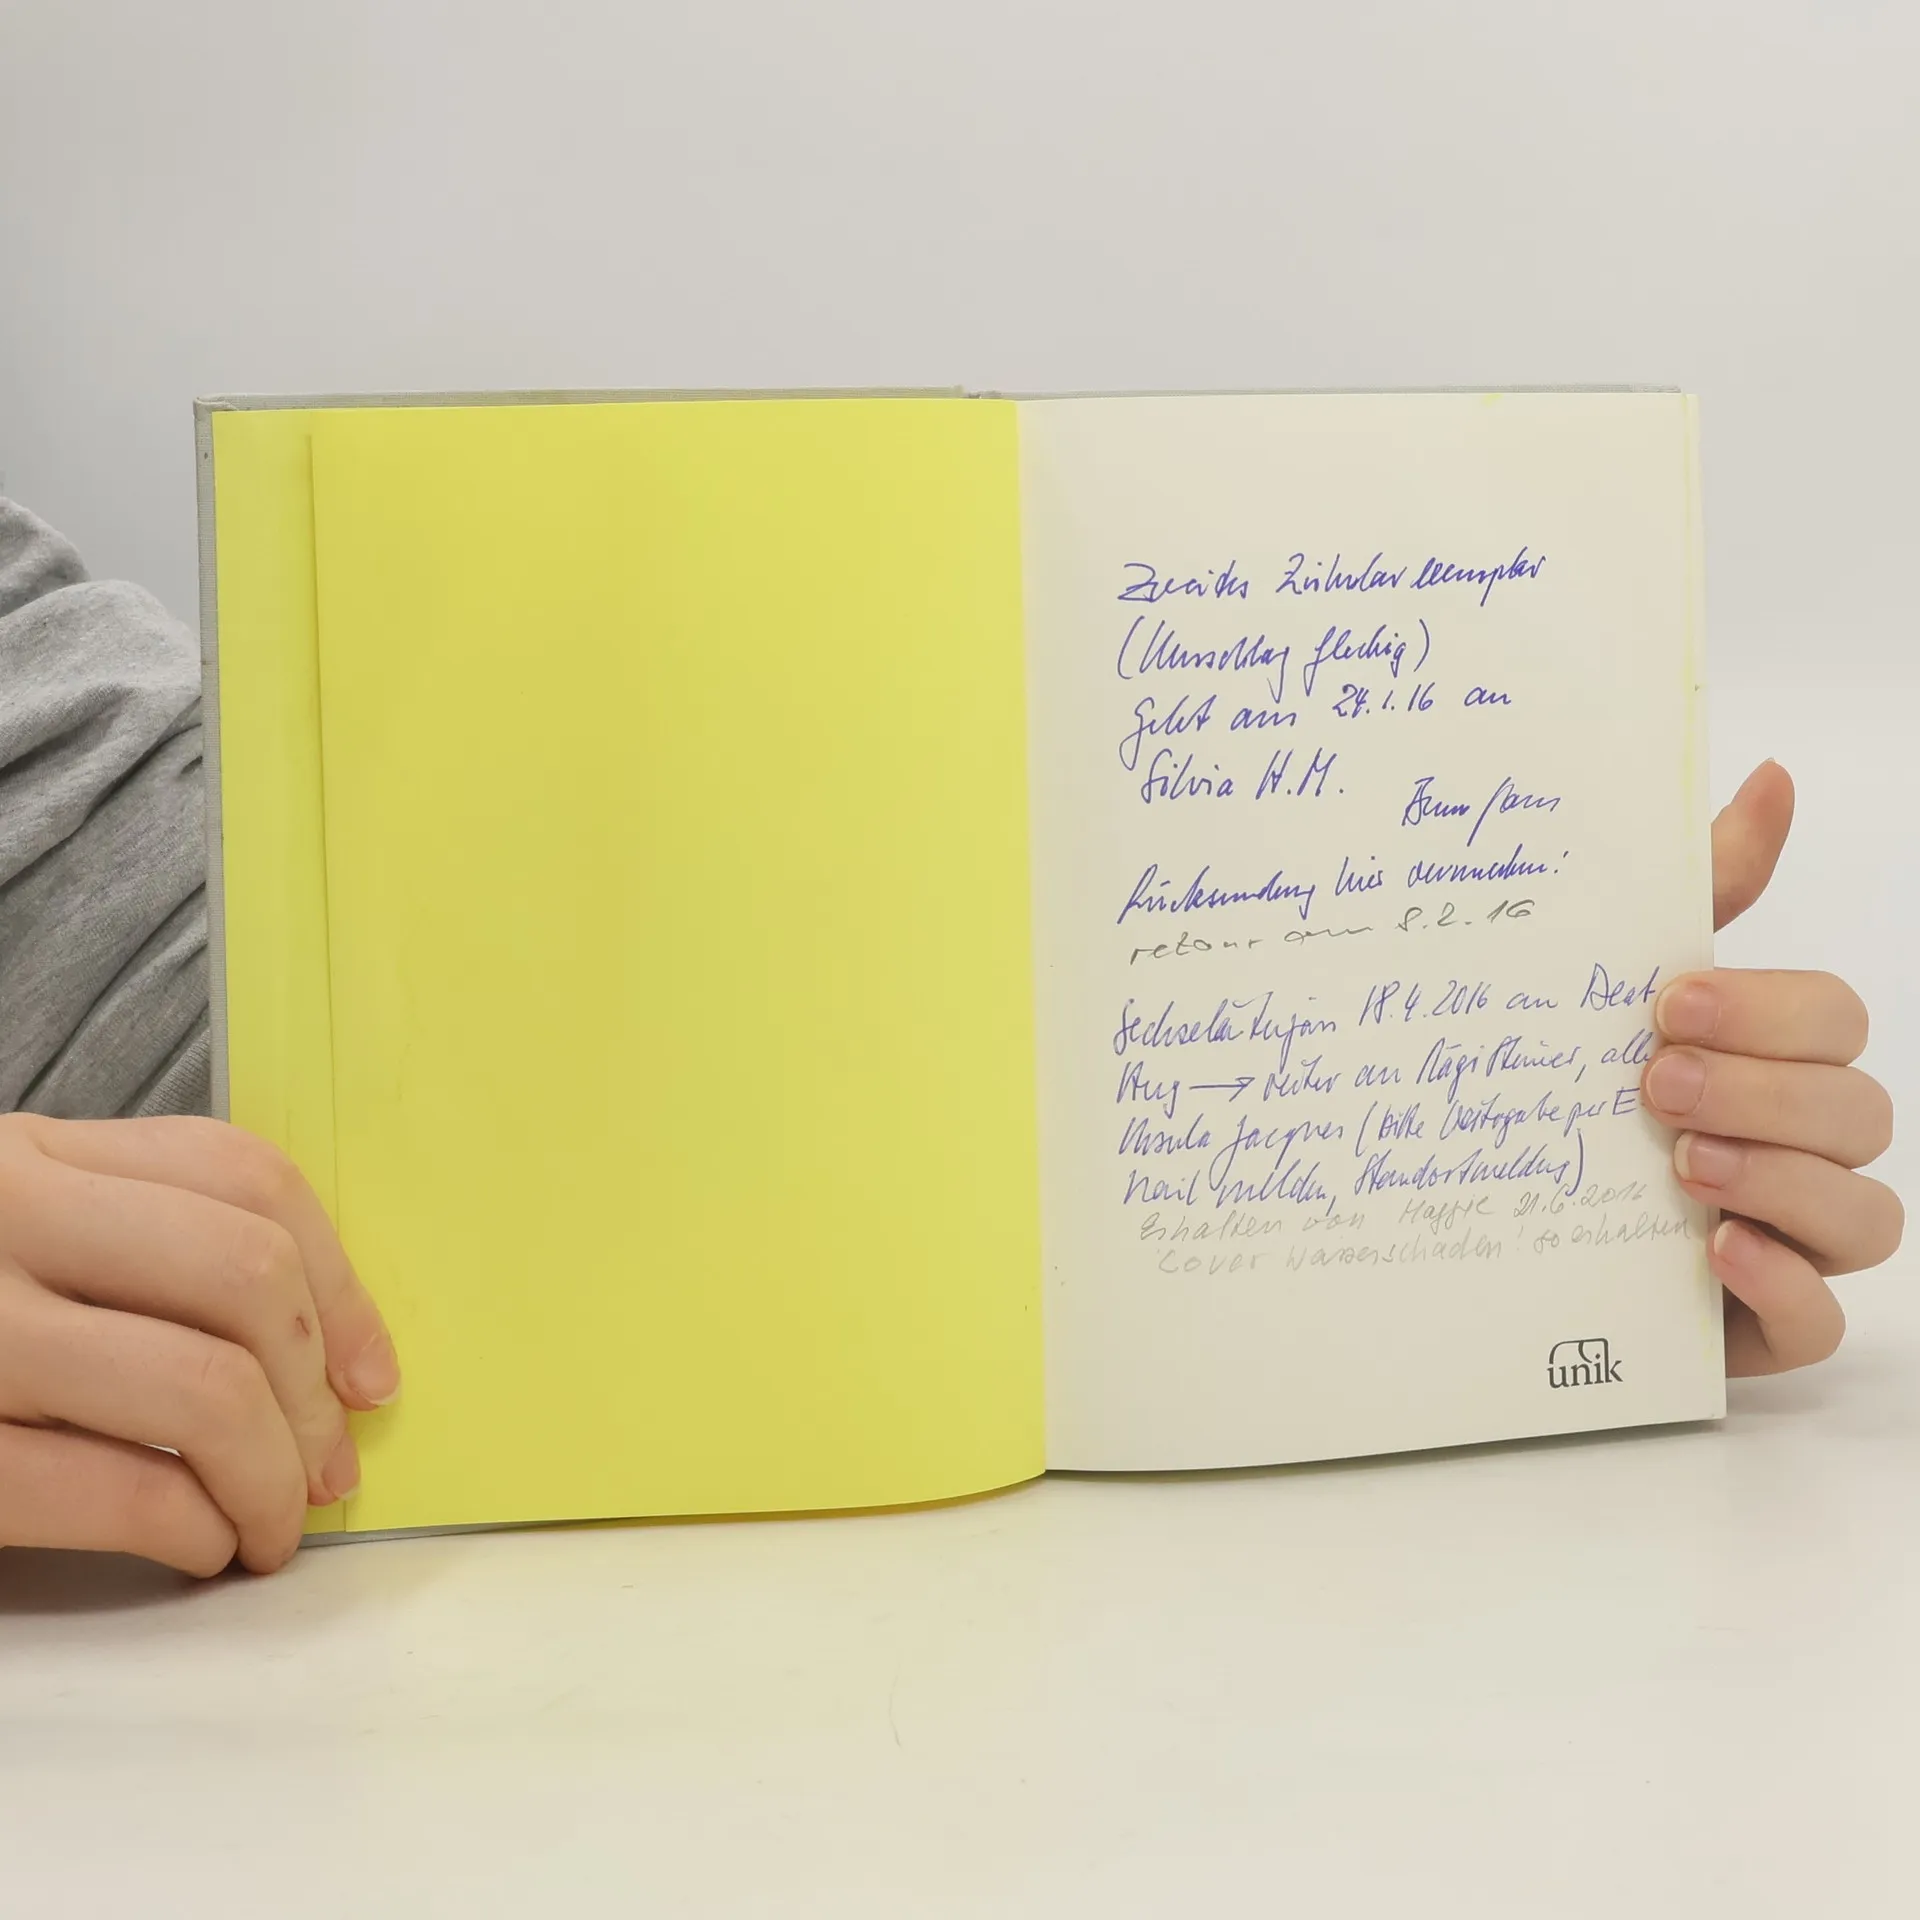 Zweites Zirkularexemplar
(Umschlag fleckig)
Geht am 24.1.16 an
Silvia H.M.
Rücksendung hier vermerken!
retour am 8.2.16
18.4.2016 an Beat
Hug → weiter an Rägi Steiner,
Ursula Jacques (bitte Weitergabe per E-
Mail melden, Standortmeldung)
Erhalten von Maggie 21.6.2016
Cover Wasserschaden! so erhalten
unik